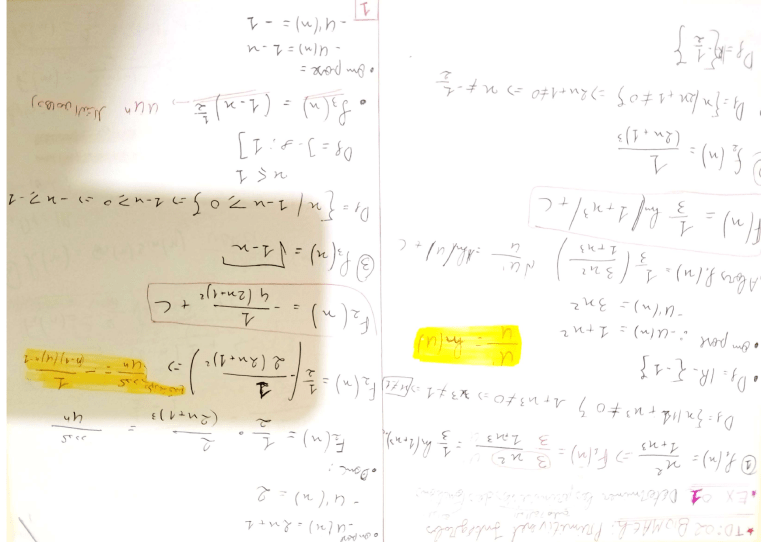 * TD: 02 BioMATH: Primitives et Intégrales
* EX 01 Déterminer les primitives des fonctions:
① f₁(x) = x²/(1+x³) => F₁(x) = 1/3 · 3x²/(1+x³) = 1/3 ln(1+x³)
D₁ = {x/ 1+x³ ≠ 0} 1+x³ ≠ 0 => x³ ≠ -1 => x ≠ -1
• D₁ = IR - {-1}
• on pose : - U(x) = 1+x³
- U'(x) = 3x²
U'/U = ln(U)
Alors f₁(x) = 1/3 (3x²/(1+x³)) U'/U = ln(U) + C
F(x) = 1/3 ln|1+x³| + C
② f₂(x) = 1/(2x+1)³
• D₁ = {x/ 2x+1 ≠ 0} => 2x+1 ≠ 0 => x ≠ -1/2
D₂ = IR - {-1/2}
• on pose
- U(x) = 2x+1
- U'(x) = 2
• Donc :
F₂(x) = 1/2 · 2/(2x+1)³ =
F₂(x) = 1/2 (- 1/(2(2x+1)²)) =>
F₂(x) = - 1/(4(2x+1)²) + C
③ f₃(x) = √(1-x)
D₁ = {x / 1-x ≥ 0} => 1-x ≥ 0 => -x ≥ -1
x ≤ 1
D₃ = ]-∞ ; 1]
• f₃(x) = (1-x)^(1/2) → U'Uⁿ
• on pose =
- U(x) = 1-x
- U'(x) = -1
1